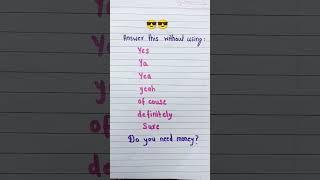 😎😎
Answer this without using:
Yes
Ya
Yea
yeah
of couse
definitely
Sure
Do you need money?